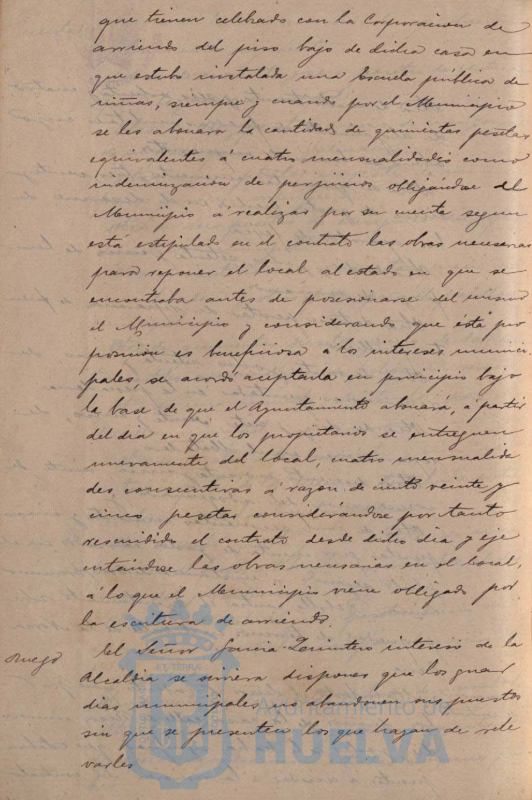 que tienen celebrado con la Corporacion de
arriendo del piso bajo de dicha casa en
que estubo instalada una Escuela publica de
niñas, siempre y cuando por el Municipio
se les abonara la cantidad de quinientas pesetas
equivalentes á cuatro mensualidades como
indemnizacion de perjuicios obligándose el
Municipio á realizar por su cuenta segun
está estipulado en el contrato las obras necesarias
para reponer el local al estado en que se
encontraba antes de posesionarse del mismo
el Municipio y considerando que esta pro
posicion es beneficiosa á los intereses munici
pales, se acordó aceptarla en principio bajo
la base de que el Ayuntamiento abonará, á partir
del dia en que los propietarios se entreguen
nuevamente del local, cuatro mensualida
des consecutivas á razon de ciento veinte y
cinco pesetas considerándose por tanto
rescindido el contrato desde dicho dia y eje
cutándose las obras necesarias en el local,
á lo que el Municipio viene obligado por
la escritura de arriendo.
Ruego El Señor Garcia Quintero interesó de la
Alcaldia se sirviera disponer que los guar
dias municipales no abandonen sus puestos
sin que se presenten los que hayan de rele
varles
Ayuntamiento de
HUELVA